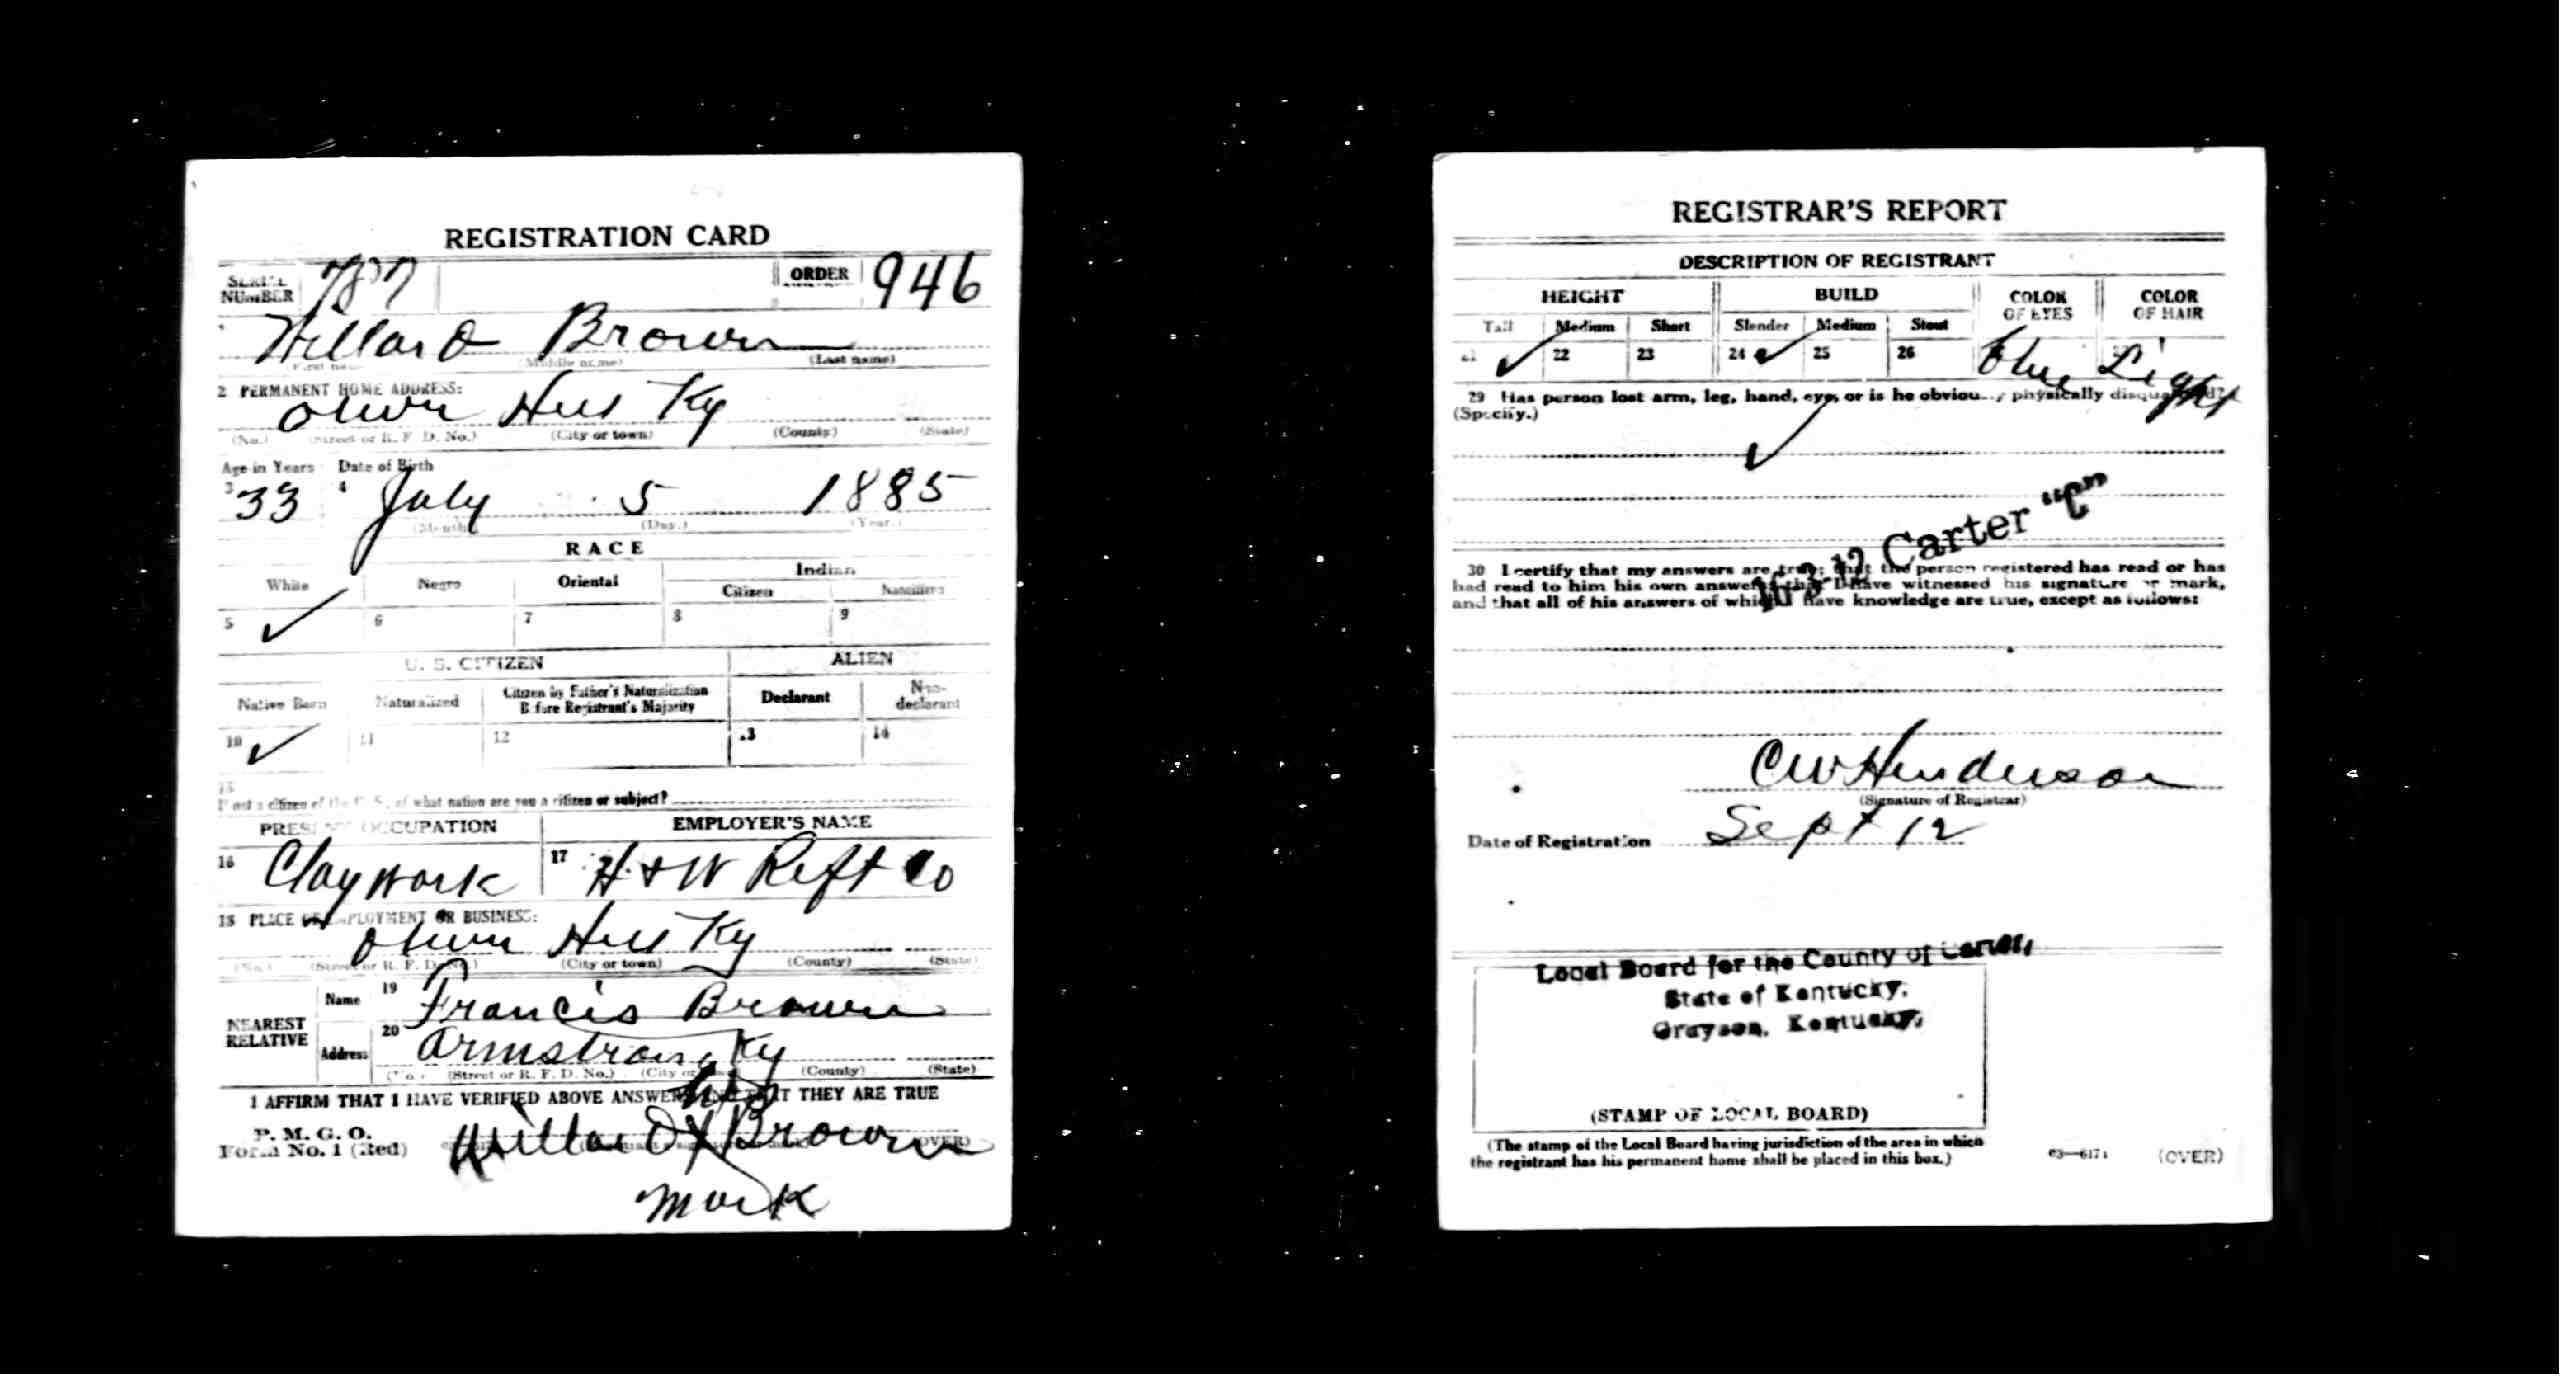 REGISTRATION CARD
SERIAL NUMBER 787 ORDER 946
1 Willard Brown
(First name) (Middle name) (Last name)
2 PERMANENT HOME ADDRESS:
Olive Hill Ky
(No.) (Street or R. F. D. No.) (City or town) (County) (State)
Age in Years Date of Birth
3 33 4 July 5 1885
(Month) (Day.) (Year.)
RACE
White Negro Oriental Indian
Citizen Noncitizen
5 ✓ 6 7 8 9
U. S. CITIZEN ALIEN
Native Born Naturalized Citizen by Father's Naturalization Before Registrant's Majority Declarant Non-declarant
10 ✓ 11 12 13 14
15
If not a citizen of the U. S., of what nation are you a citizen or subject?
PRESENT OCCUPATION EMPLOYER'S NAME
16 Clay work 17 H + W Reft Co
18 PLACE OF EMPLOYMENT OR BUSINESS:
Olive Hill Ky
(No.) (Street or R. F. D. No.) (City or town) (County) (State)
NEAREST RELATIVE
Name 19 Francis Brown
Address 20 Armstrong Ky
(No.) (Street or R. F. D. No.) (City or town) (County) (State)
I AFFIRM THAT I HAVE VERIFIED ABOVE ANSWERS AND THAT THEY ARE TRUE
P. M. G. O.
Form No. 1 (Red)
his
Willard X Brown
(OVER)
mark
REGISTRAR'S REPORT
DESCRIPTION OF REGISTRANT
HEIGHT BUILD COLOR OF EYES COLOR OF HAIR
Tall Medium Short Slender Medium Stout
21 ✓ 22 23 24 ✓ 25 26 blue Light
29 Has person lost arm, leg, hand, eye, or is he obviously physically disqualified?
(Specify.)
✓
16-3-12 Carter "C"
30 I certify that my answers are true; that the person registered has read or has
had read to him his own answers; that I have witnessed his signature or mark,
and that all of his answers of which I have knowledge are true, except as follows:
C W Henderson
(Signature of Registrar)
Date of Registration Sept 12
Local Board for the County of Carter,
State of Kentucky,
Grayson, Kentucky,
(STAMP OF LOCAL BOARD)
(The stamp of the Local Board having jurisdiction of the area in which
the registrant has his permanent home shall be placed in this box.)
03—6171 (OVER)